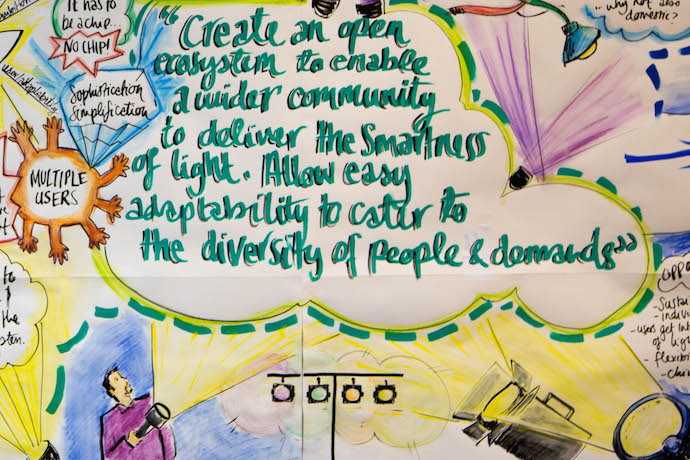 It has to
be a chip...
NO CHIP!
Sophistication
Simplification
MULTIPLE
USERS
"Create an open
ecosystem to enable
a wider community
to deliver the Smartness
of light. Allow easy
adaptability to cater to
the diversity of people & demands"
...why not also
domestic?
to
the
OPPO
Susta
- indivi
- users get in
of lig
- flexib